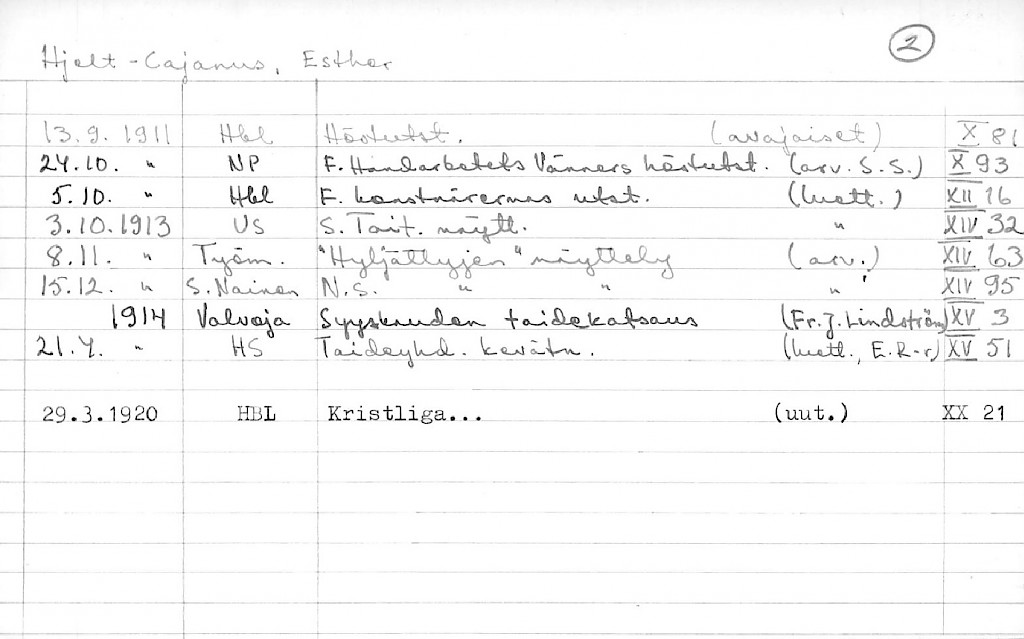 2
Hjelt-Cajanus, Esther
13.9. 1911 Hbl Höstutst. (avajaiset) X 81
24.10. " NP F. Handarbetets Vänners höstutst. (arv. S.S.) X 93
5.10. " Hbl F. konstnärernas utst. (luett.) XII 16
3.10.1913 US S. Tait. näytt. " XIV 32
8.11. " Työm. "Hyljättyjen" näyttely (arv.) XIV 63
15.12. " S. Nainen N.S. " " " XIV 95
1914 Valvoja Syyskauden taidekatsaus (Fr. J. Lindström) XV 3
21.4. " HS Taideyhd. kevätn. (luett., E.R-r) XV 51
29.3.1920 HBL Kristliga... (uut.) XX 21